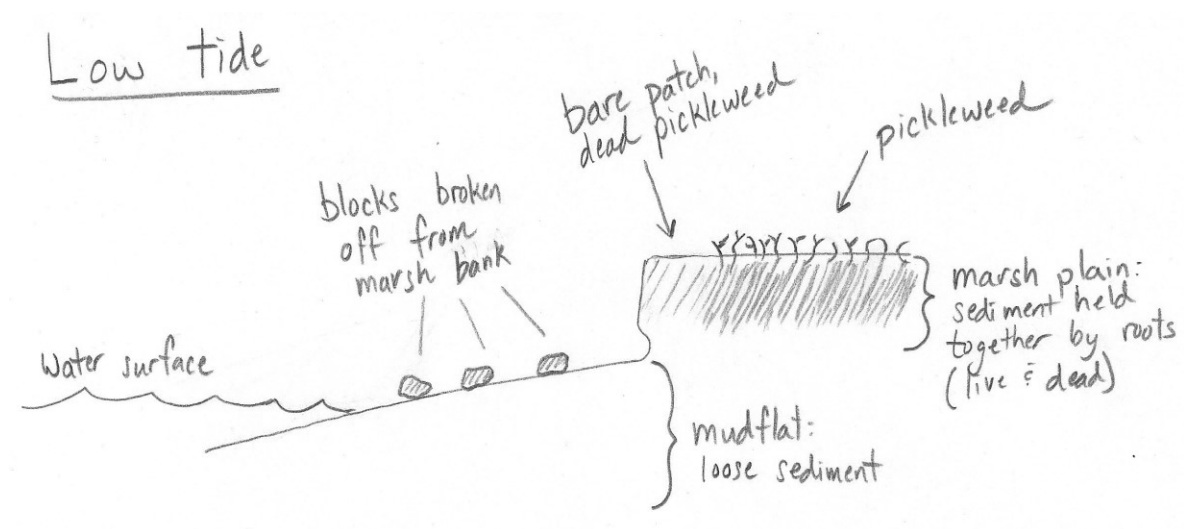 Low tide
bare patch,
dead pickleweed
pickleweed
blocks broken
off from
marsh bank
water surface
marsh plain:
sediment held
together by roots
(live & dead)
mudflat:
loose sediment